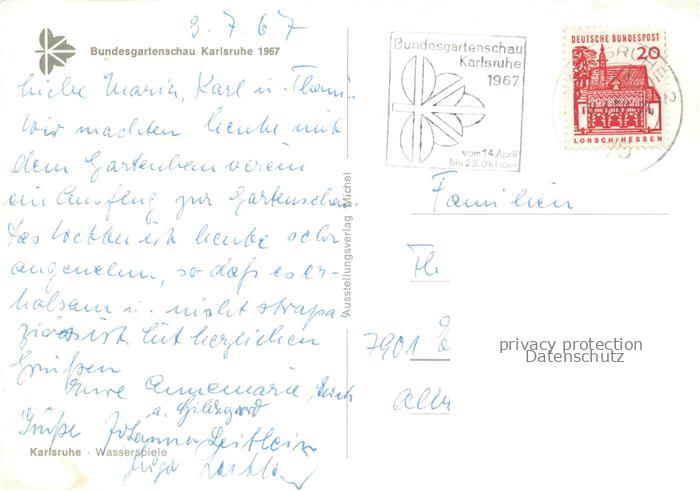 3.7.67
Bundesgartenschau Karlsruhe 1967
Liebe Maria, Karl u.
Wir machten heute mit
dem Gartenbauverein
ein Ausflug zur Gartenschau.
Das Wetter ist heute sehr
angenehm, so daß es er-
holsam u. nicht strapa
ziös ist. Mit herzlichen
Grüßen
Eure Annemarie, Erich
u. Hildegard
Grüße Johanna
Karlsruhe · Wasserspiele
Ausstellungsverlag Michel
Bundesgartenschau
Karlsruhe
1967
vom 14. April
bis 23. Oktober
DEUTSCHE BUNDESPOST
20
LORSCH/HESSEN
Familien
Th
7901
privacy protection
Datenschutz